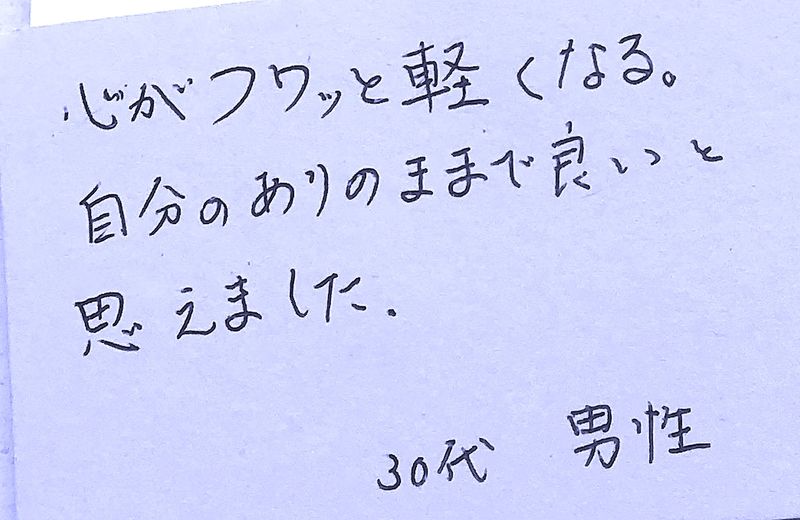 心がフワッと軽くなる。
自分のありのままで良いと
思えました.
30代 男性